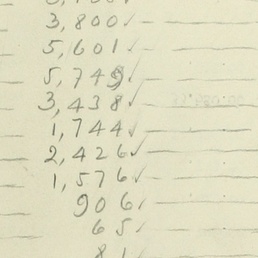 3,800✓
5,601✓
5,749✓
3,438✓
1,744✓
2,426✓
1,576✓
906✓
65✓
81✓